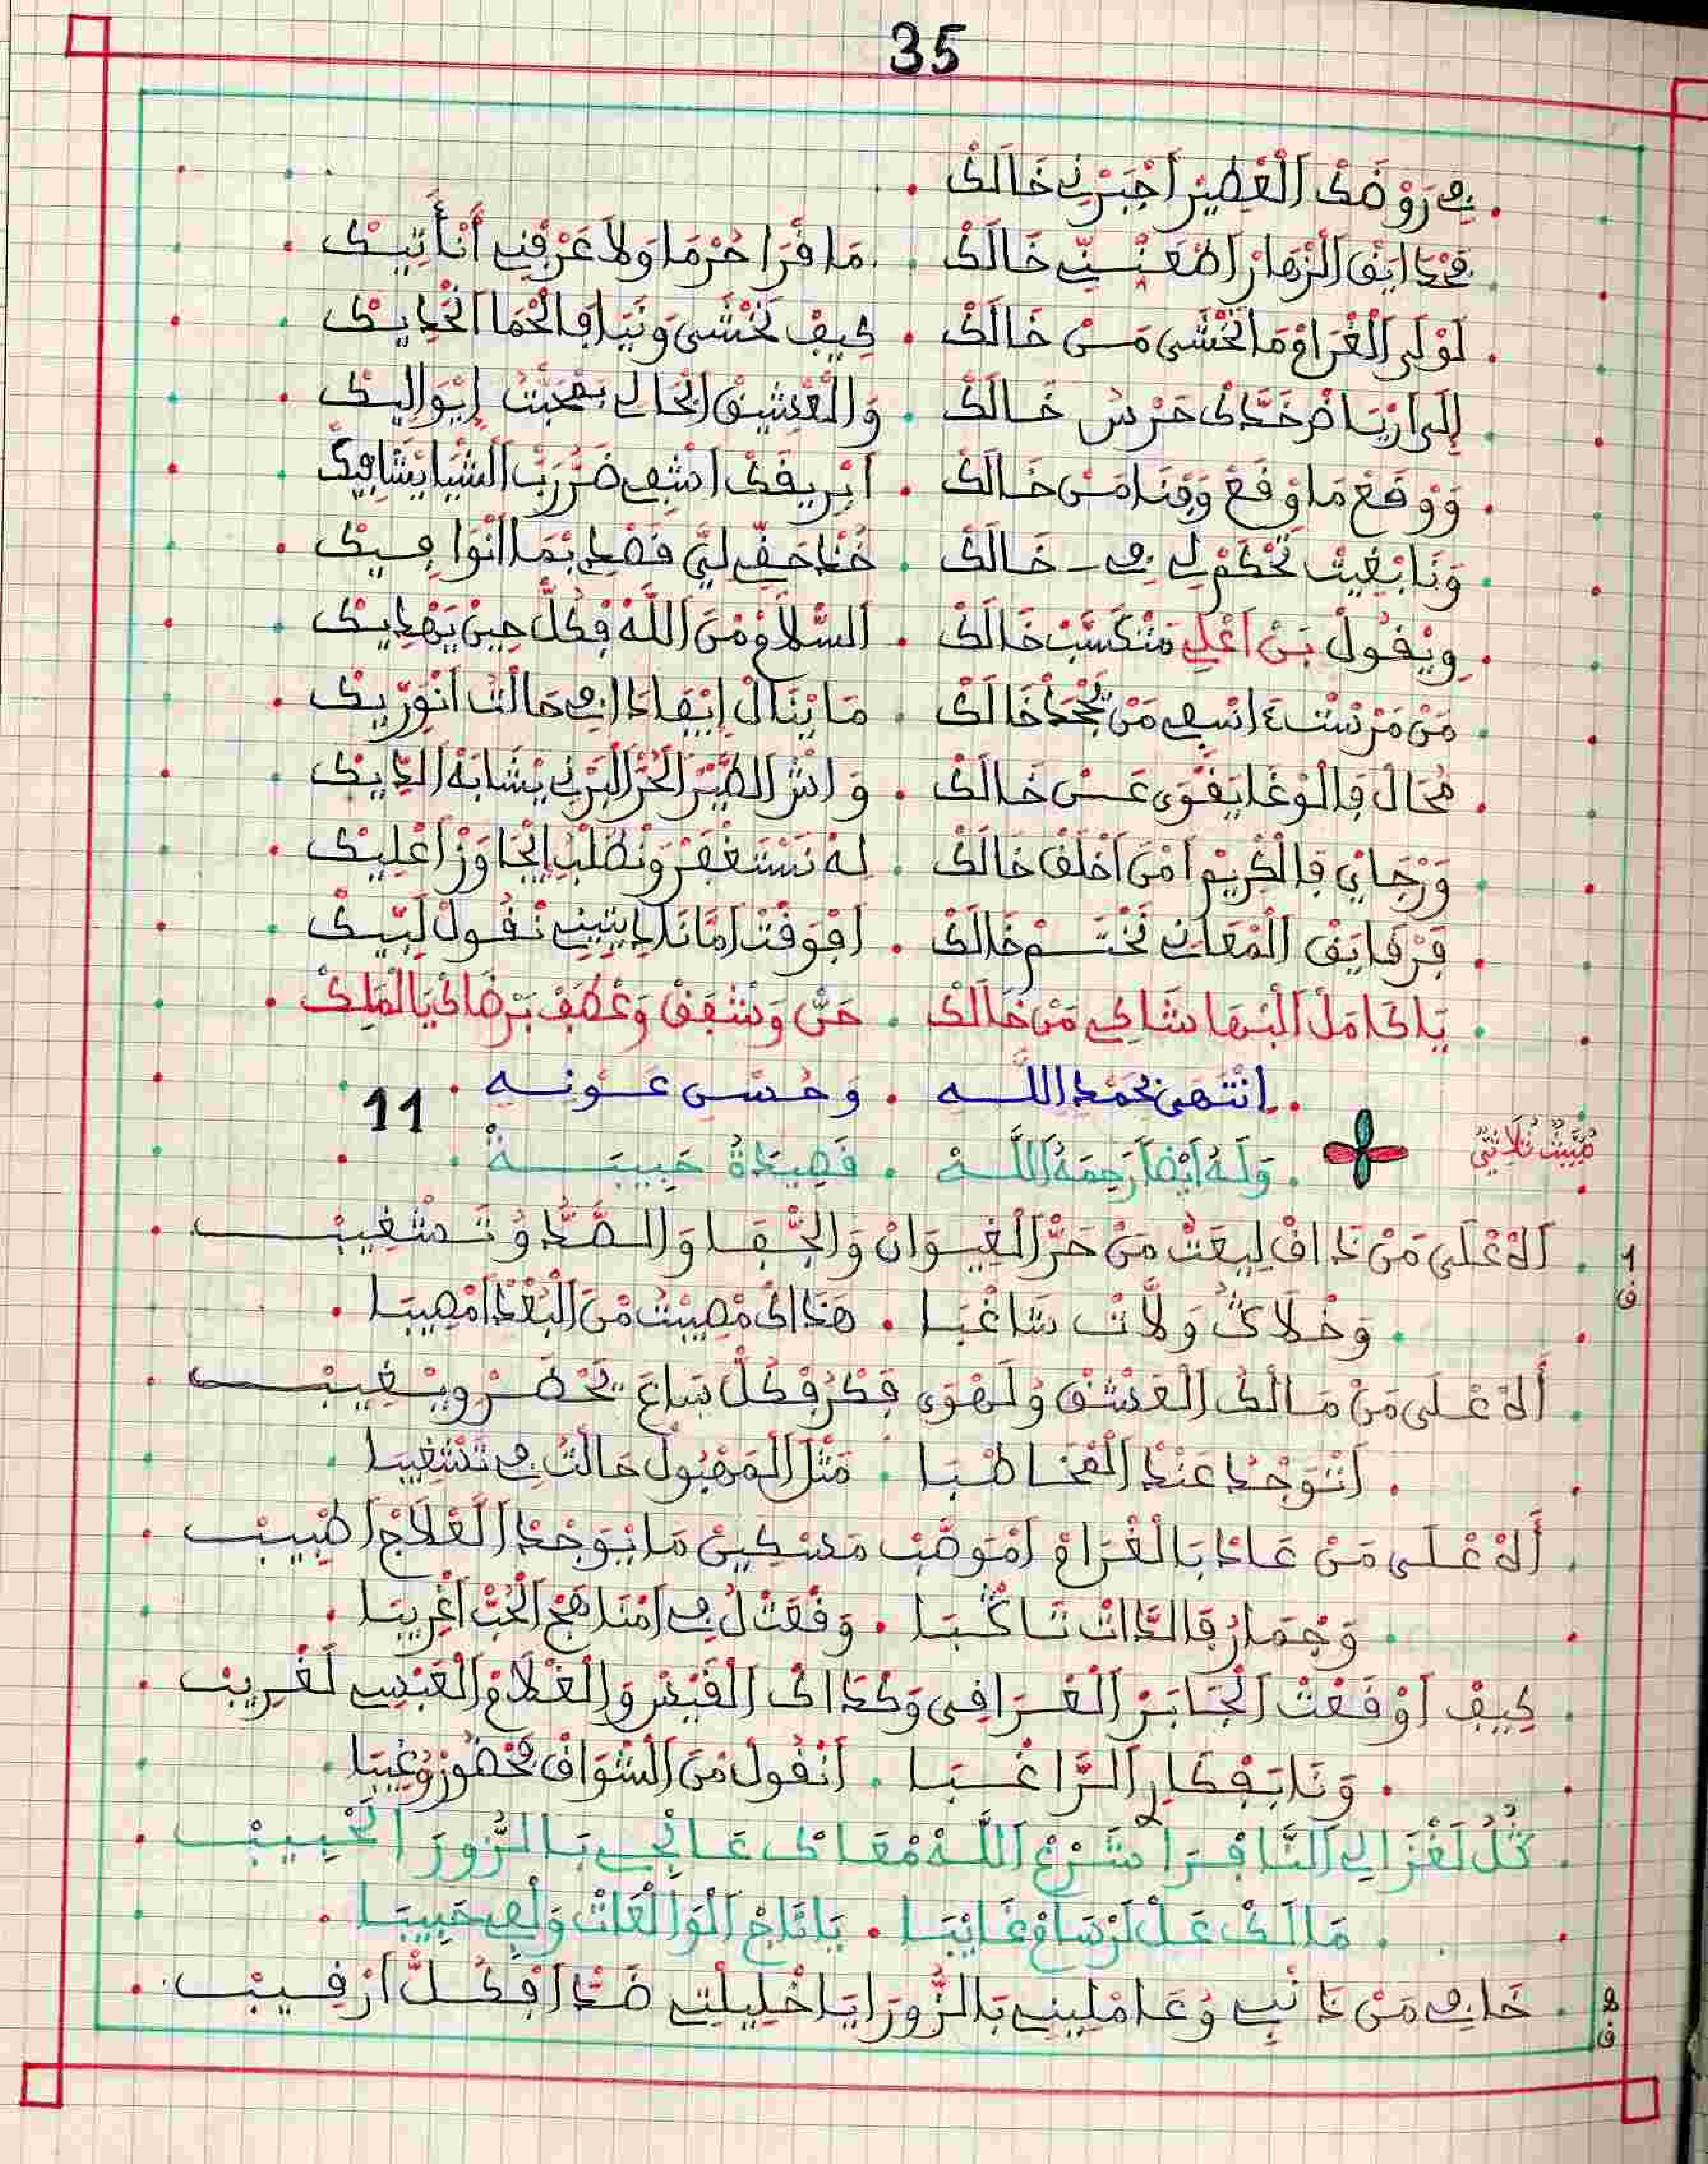 35
في رَوْضَكْ اَلْعْطِيرْ اَجْبَرْنِي خَالَكْ
فَحْدَايَقْ اَلزّْهَارْ اَطْعَنِّي خَالَكْ . مَا قْرَا حُرْمَا وَلاَ عَرْفْنِي اَنْأَتِيكْ
لَوْلَى اَلْغْرَامْ مَا نَخْشَى مَنْ خَالَكْ . كِيفْ نَخْشَى وَنَيَا فَالْحْمَا اَنْحَادِيكْ
إِلَى اَرْيَاضْ خَدَّكْ حَرْسْ خَالَكْ . وَالْعْشِيقْ اِلْحَالِي بَمْحَبْتْ إِيْوَالِيكْ
وَوْقَعْ مَا وْقَعْ وَفْنَا مَنْ خَالَكْ . اَبْرِيقَكْ اَشْفِي ضَرّْ رَبّْ اَلشّْيَا يَشَافِيكْ
وَنَا بْغِيتْ تَحْكَمْ لِي فِي خَالَكْ . خُذْ حَقِّي لِيَّ فَصْدِ بْمَا اَنْوَا فِيكْ
وِيْقُولْ بَنْ اَعْلِي مَتْكَسَّبْ خَالَكْ . اَلسّْلاَمْ مْنَ اَللَّهْ فْكُلّْ حِينْ يَهْدِيكْ
مَنْ مَرْسْتْ اسْفِي مَنْ يَجْحَدْ خَالَكْ . مَا يْنَالْ إِيْفَادَا فِي حَالْتْ اَنْوَرِّيكْ
مُحَالْ فَالْوْغَا يَقْوَى عَنْ خَالَكْ . وَاشْ اَلطّْيَرْ اَلْحُرّْ اَلْبَرْنِي يْشَابَهْ اَلدِّيكْ
وَرْجَايْ فَالْكْرِيمْ اَمْنَ اَخْلَقْ خَالَكْ . لَهْ نَسْتَغْفَرْ وَنْطَلْبْ اِيْجَاوَزْ اَعْلِيكْ
فَرْقَايَقْ اَلْمْعَانِي نَخْتَمْ خَالَكْ . اَفْوَقْتْ اَمَّا نَادِيتِينِي نْقُولْ لَبِّيكْ
يَا كَامَلْ اَلْبْهَا شَاكِي مَنْ خَالَكْ . حَنّْ وَشْفَقْ وَعْطَفْ بَرْضَاكْ يَا لْمَلِكْ
اِنْتَهَى بِحَمْدِ اللَّه . وَحُسْنِ عَوْنِه
11
مْبَيَّتْ ثُلَاثِي
وَلَهُ أَيْضًا رَحِمَهُ اَللَّه . قَصِيدَةُ حَبِيبَة
1
ق
اَلاَهْ عْلَى مَنْ ذَاقْ لِيعَتْ مَنْ حَرّْ اَلْغِيوَانْ وَالْجْفَا وَالصَّدّْ وُتَمْشْغِيبْ
وَخْلاَكْ وَلاَّتْ شَاغْبَا . هَذَاكْ مْصِيبْتْ مْنَ اَلْبُعْدْ اَمْصِيبَا
أَلاَهْ عْلَى مَنْ مَالْكُ اَلْعَشْقْ وُلَهْوَى فَكْرُ فْكُلّْ سَاعَ يَحْضَرْ وِيْغِيبْ
اَنْتَوَجْدْ عَنْدْ اَلْمْخَاطْبَا . مَثْلَ اَلْمَهْبُولْ حَالْتُ فِي تَشْغِيبَا
أَلاَهْ عْلَى مَنْ عَادْ بَالْغْرَامْ اَمْوَصَّبْ مَسْكِينْ مَا يْوَجْدْ اَلْعْلاَجْ اَطْبِيبْ
وَجْمَارُ فَالذَّاتْ تَاكْبَا . وَقْعَتْ لُ فِي اَمْنَاهَجْ اَلْحُبّْ اَغْرِيبَا
كِيفْ اَوْقَعْتْ اَلْجَابَرْ اَلْعْرَاقِي وَكْدَاكْ اَلْقَيْسْ وَالْغْلاَمْ اَلْعَبْسِي لَغْرِيبْ
وَنَا بَفْكَارِ اَلرَّاغْبَا . اَنْقُولْ مْنَ اَلشْوَاقْ فَحْضُورْ وُغِيبَا
قُلْ لَغْزَالِي اَلنَّافْرَا شَرْعْ اَللَّهْ مْعَاكْ عَانْجِي بَالزُّورَ اَلْحْبِيبْ
مَالَكْ عَلْ لَرْسَامْ غَايْبَا . يَا تَاجْ اَلْوَالْعَاتْ وَلْفِي حَبِيبَا
2
ق
خَافِي مَنْ ذَنْبِي وُعَامْلِينِي بَالزُّورَا يَا خْلِيلْتِي ضَدَّا فْكُلّْ اَرْقِيبْ